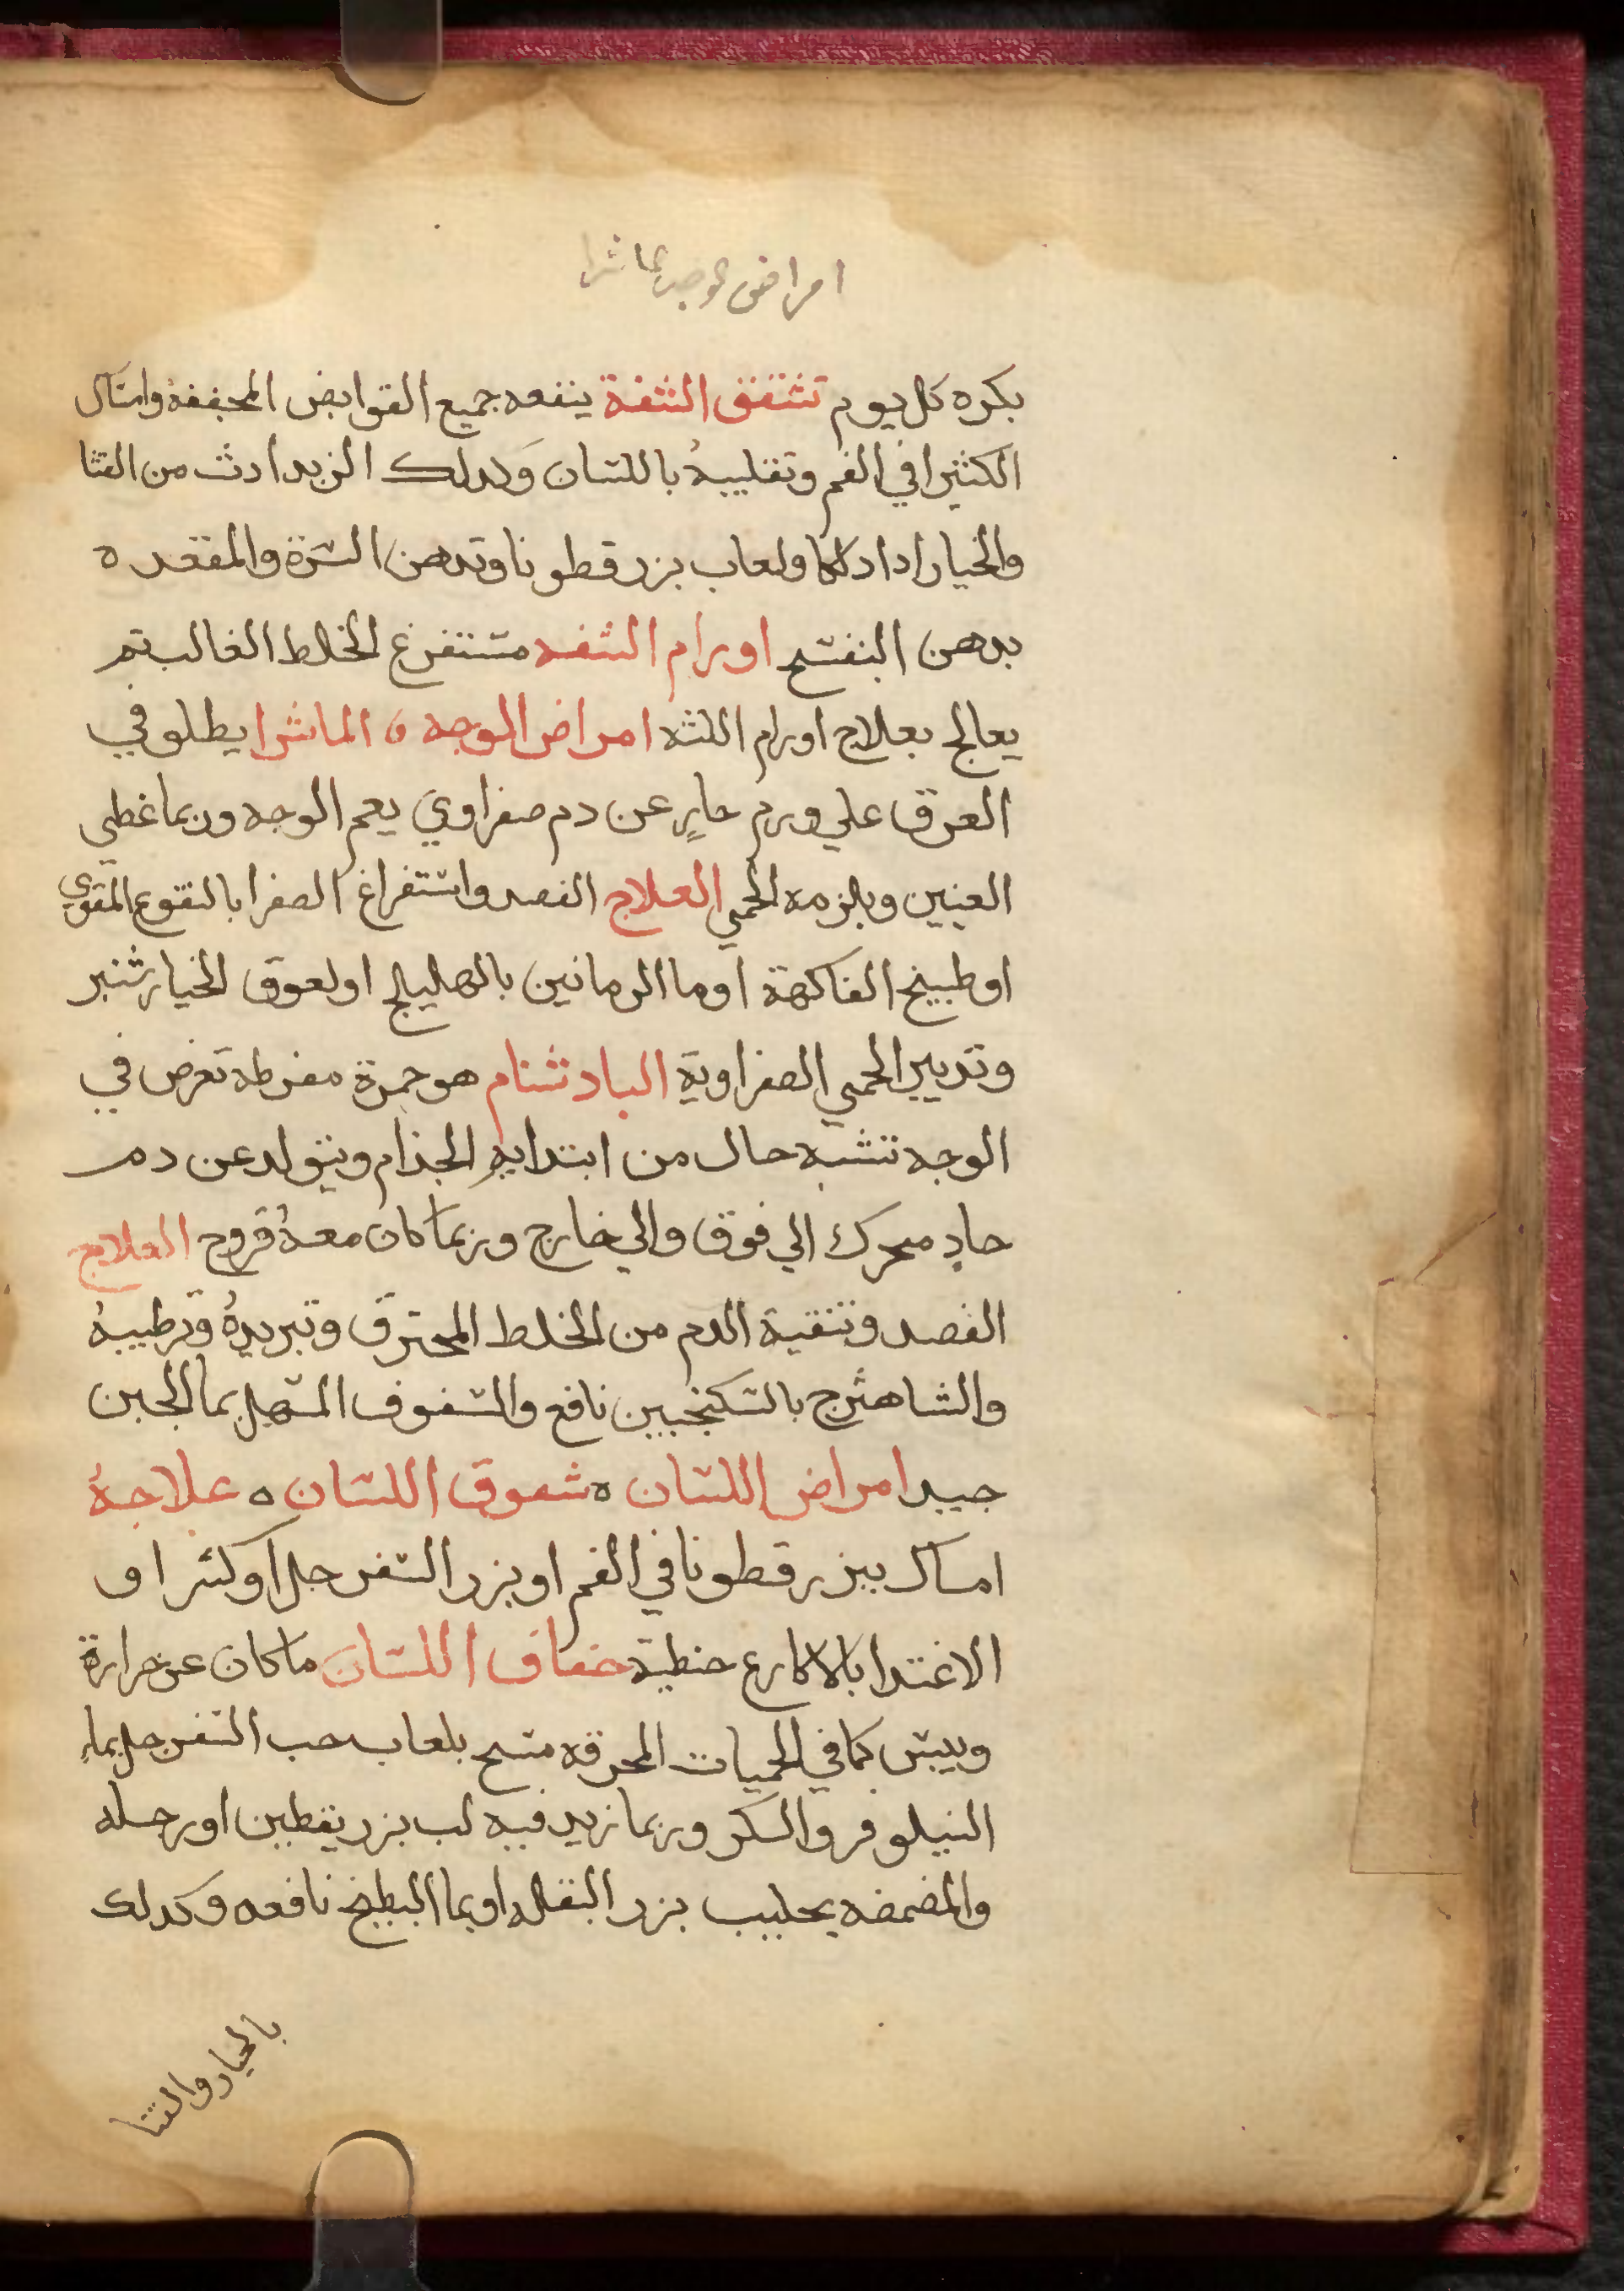 امراض الوجه ماشرا
بكره كل يوم تشقق الشفة ينفعه جميع القوابض المجففة وامساك
الكثيرا في الفم وتقليبهُ باللسان وكدلك الزبد ادث من القثا
والخيار ادا دلكا ولعاب بزر قطونا وتدهن السرة والمقعده
بدهن البنفسج اورام الشفه مستفرغ الخلط الغالب تم
يعالج بعلاج اورام اللثه امراض الوجه ٥ الماشرا يطلو في
العرق علي ورم حارٍ عن دم صفراوي يعم الوجه وربما غطي
العينين ويلزمه الحمي العلاج الفصد واستفراغ الصفرا بالنقوع المقوي
او طبيخ الفاكهة او ما الرمانين بالهليلج او لعوق الخيار شنبر
وتدبير الحمي الصفراوية البادشنام هو حمرة مفرطه تعرض في
الوجه تشبه حال من ابتدا به الجذام ويتولد عن دم
حادٍ محرك الي فوق والي خارج وربما كان معهُ قروح العلاج
الفصد وتنقية الدم من الخلط المحترق وتبريدهُ وترطيبهُ
والشاهترج بالسكنجبين نافع والسفوف المسهل بما الجبن
جيد امراض اللسان ٥ شقوق اللسان ٥ علاجهُ
امساك ببزر قطونا في الفم او بزر السفرجل او كثرا او
الاغتدا بالاكارع حنطية جفاف اللسان ما كان عن حرارة
ويبس كما في الحميات المحرقه مسح بلعاب حب السفرجل بماءِ
النيلوفر والسكر وربما زيد فيه لب بزر يقطين او رجله
والمضمضه بحليب بزر البقله او بما البطيخ نافعه وكدلك
بالخيار والقثا